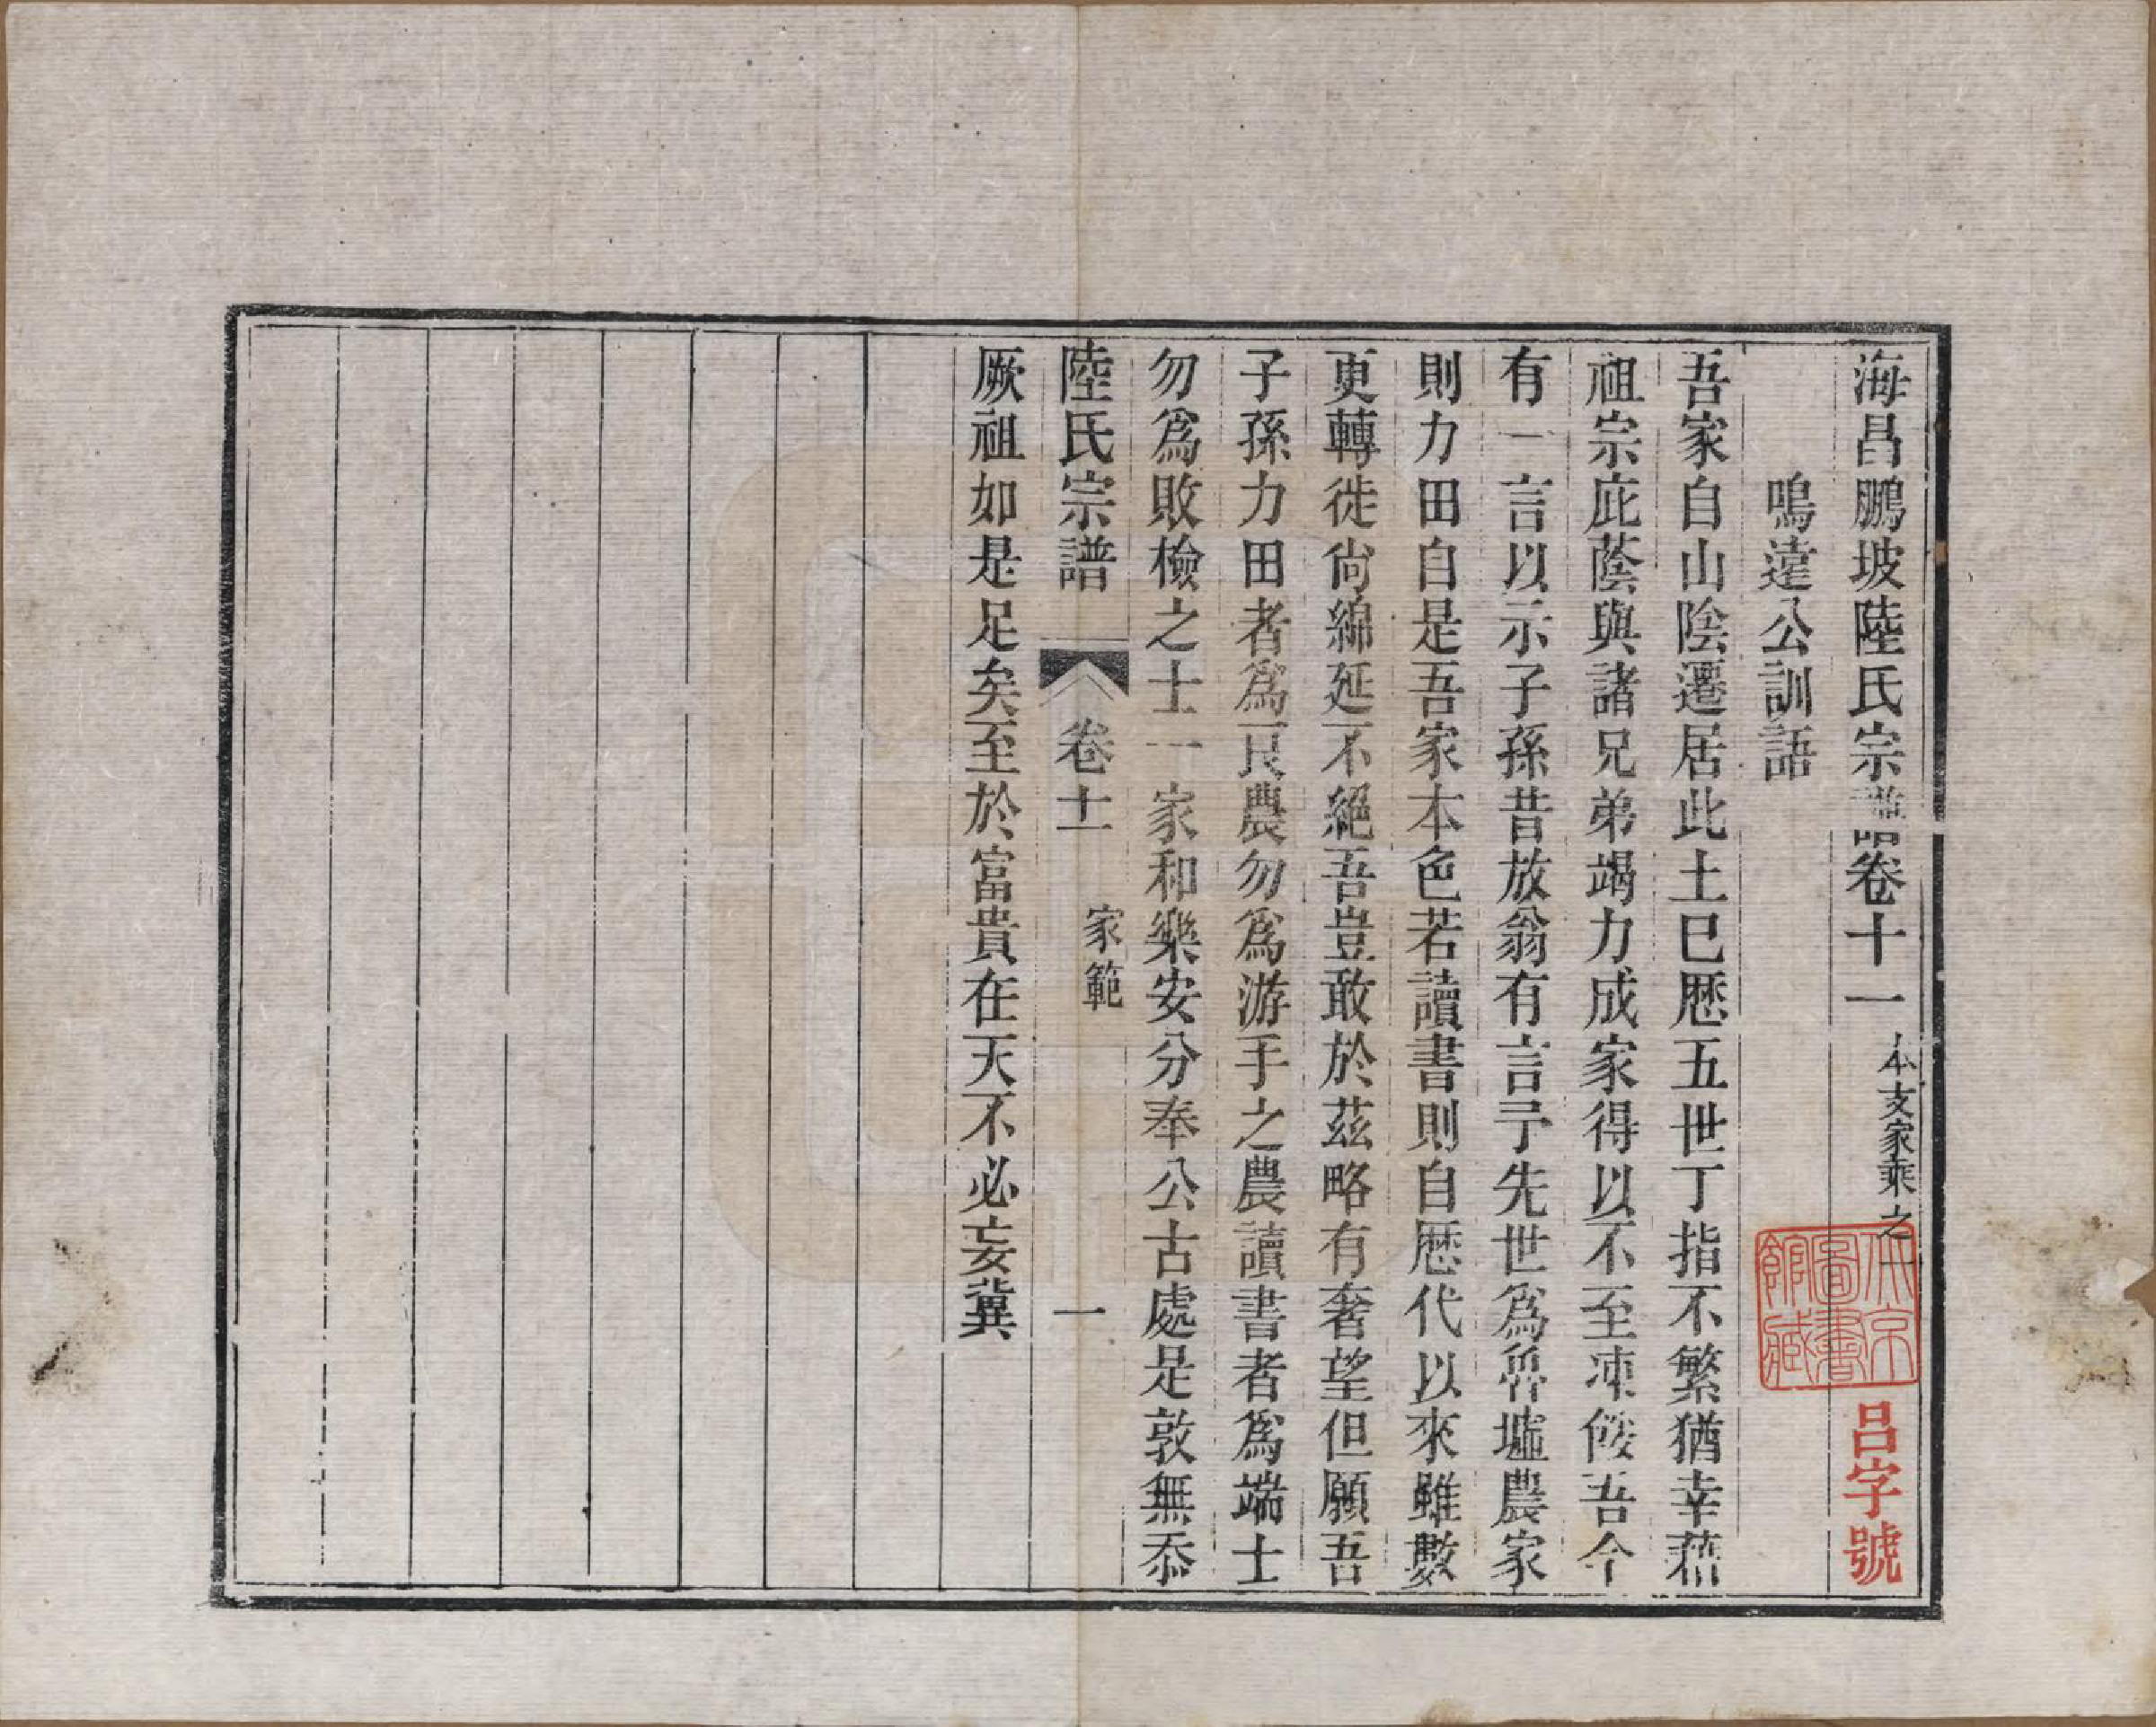 海昌鵬坡陸氏宗譜卷十一 本支家乘之一
北京圖書館藏
呂字號
鳴遠公訓語
吾家自山陰遷居此土巳歷五世丁指不繁猶幸藉
祖宗庇蔭與諸兄弟竭力成家得以不至凍餒吾今
有一言以示子孫昔放翁有言予先世爲魯墟農家
則力田自是吾家本色若讀書則自歷代以來雖數
更轉徙尙綿延不絕吾豈敢於茲略有奢望但願吾
子孫力田者爲良農勿爲游手之農讀書者爲端士
勿爲敗檢之士一家和樂安分奉公古處是敦無忝
陸氏宗譜 卷十一 家範 一
厥祖如是足矣至於富貴在天不必妄冀